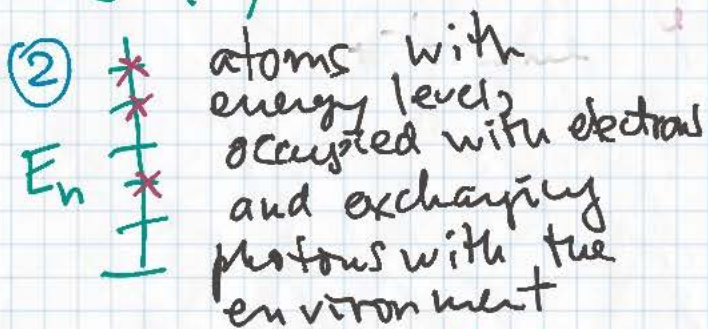 ② atoms with
energy levels
occupied with electrons
E_n and exchanging
photons with the
environment